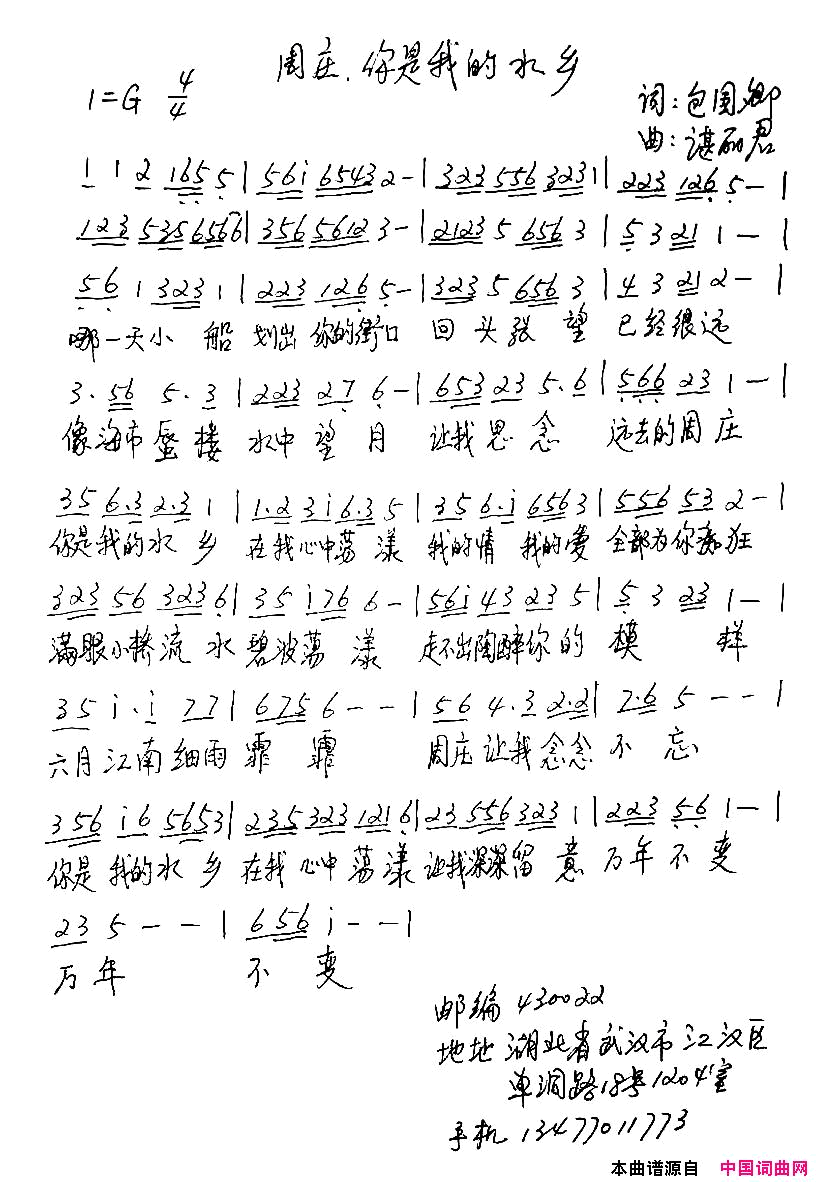 周庄,你是我的水乡
1=G 4/4
词:包国卿
曲:谌丽君
1 1 2 165 5 | 561 6543 2 - | 323 556 323 1 | 223 126 5 - |
123 535 6566 | 356 5612 3 - | 2123 5 656 3 | 5 3 21 1 - |
56 1 323 1 | 223 126 5 - | 323 5 656 3 | 4 3 21 2 - |
哪一天小船 划出你的街口 回头张望 已经很远
3. 56 5. 3 | 223 27 6 - | 653 23 5. 6 | 566 23 1 - |
像海市蜃楼 水中望月 让我思念 远去的周庄
35 6.3 2.3 1 | 1.2 3i 6.3 5 | 35 6.i 656 3 | 556 53 2 - |
你是我的水乡 在我心中荡漾 我的情 我的爱 全部为你痴狂
323 56 323 6 | 35 i76 6 - | 56i 43 23 5 | 5 3 23 1 - |
满眼小桥流水 碧波荡漾 走不出陶醉你的模样
35 i. i 77 | 675 6 - - | 56 4.3 2.2 | 7.6 5 - - |
六月江南细雨霏霏 周庄让我念念不忘
356 i6 5653 | 235 323 121 6 | 23 556 323 1 | 223 56 1 - |
你是我的水乡 在我心中荡漾 让我深深留意 万年不变
23 5 - - | 656 i - - |
万年 不变
邮编 430022
地址 湖北省武汉市江汉区
单洞路18号1204室
手机 13477011773
本曲谱源自 中国词曲网